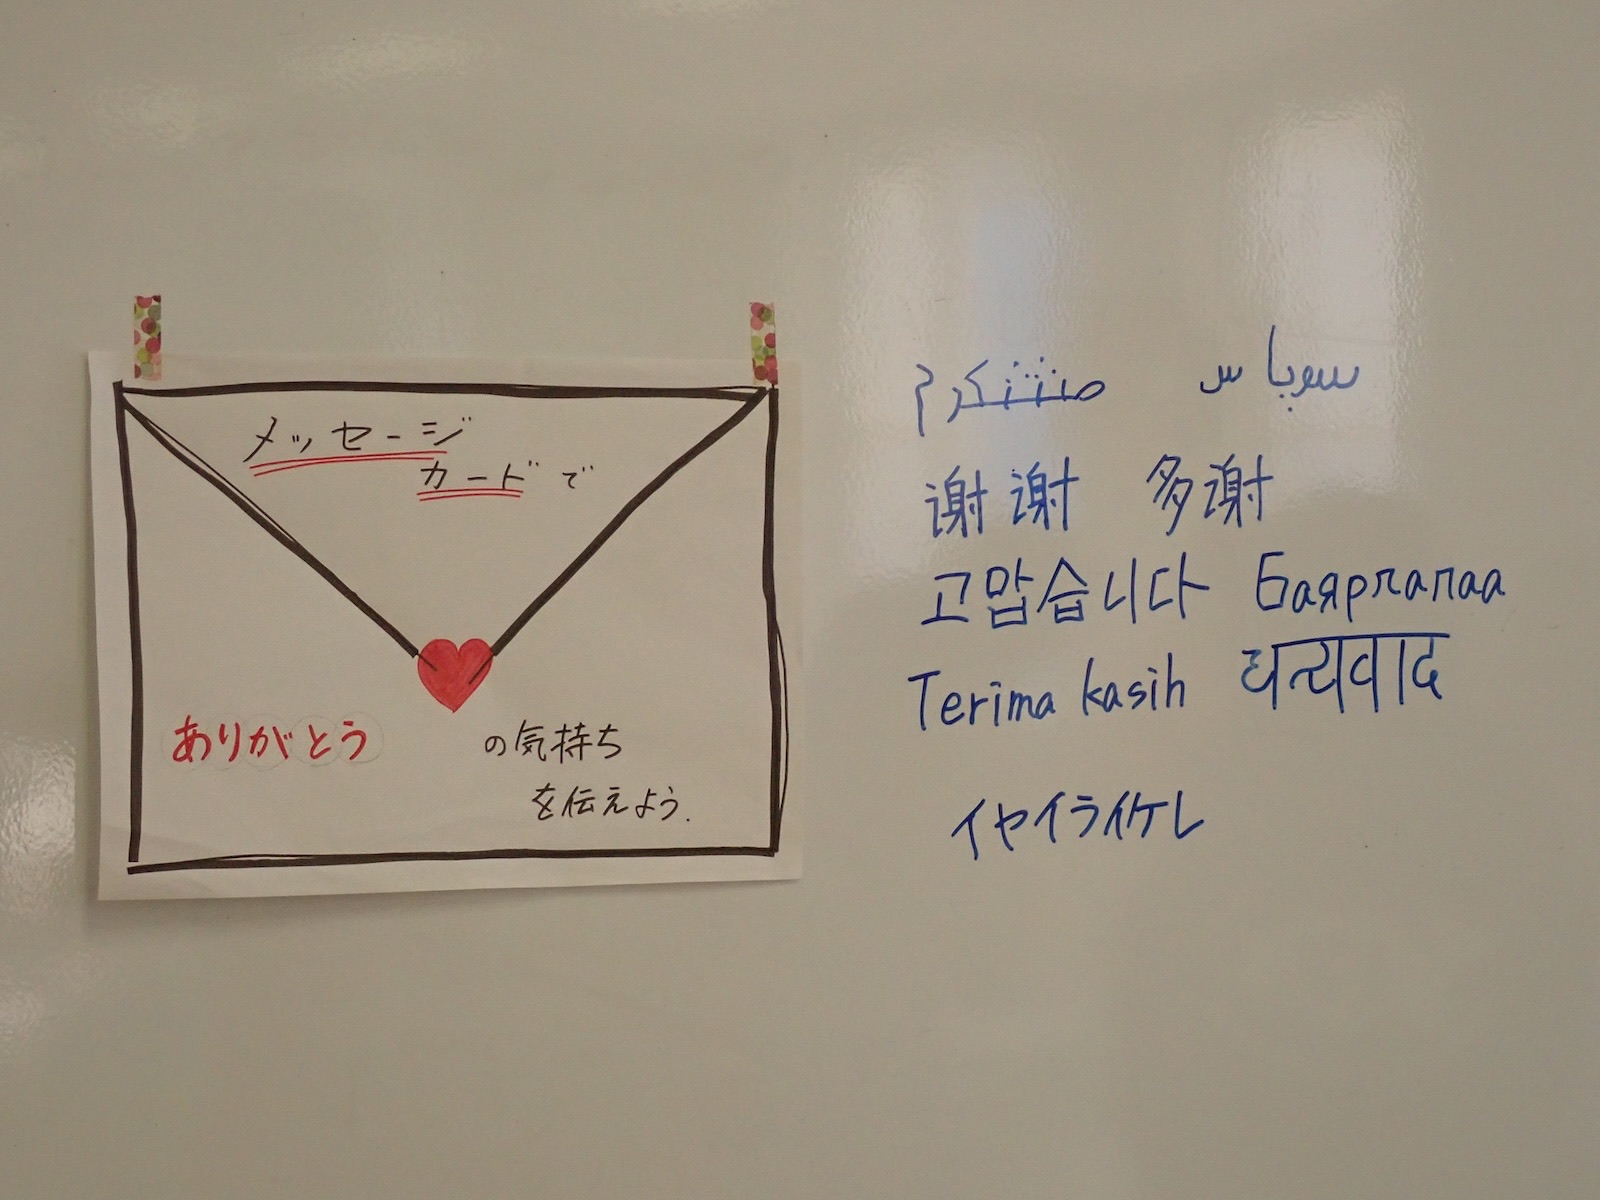 メッセージ
カードで
ありがとう の気持ち
を伝えよう.
متشکرم سوپاس
谢谢 多谢
고맙습니다 Баярлалаа
Terima kasih धन्यवाद
イヤイライケレ